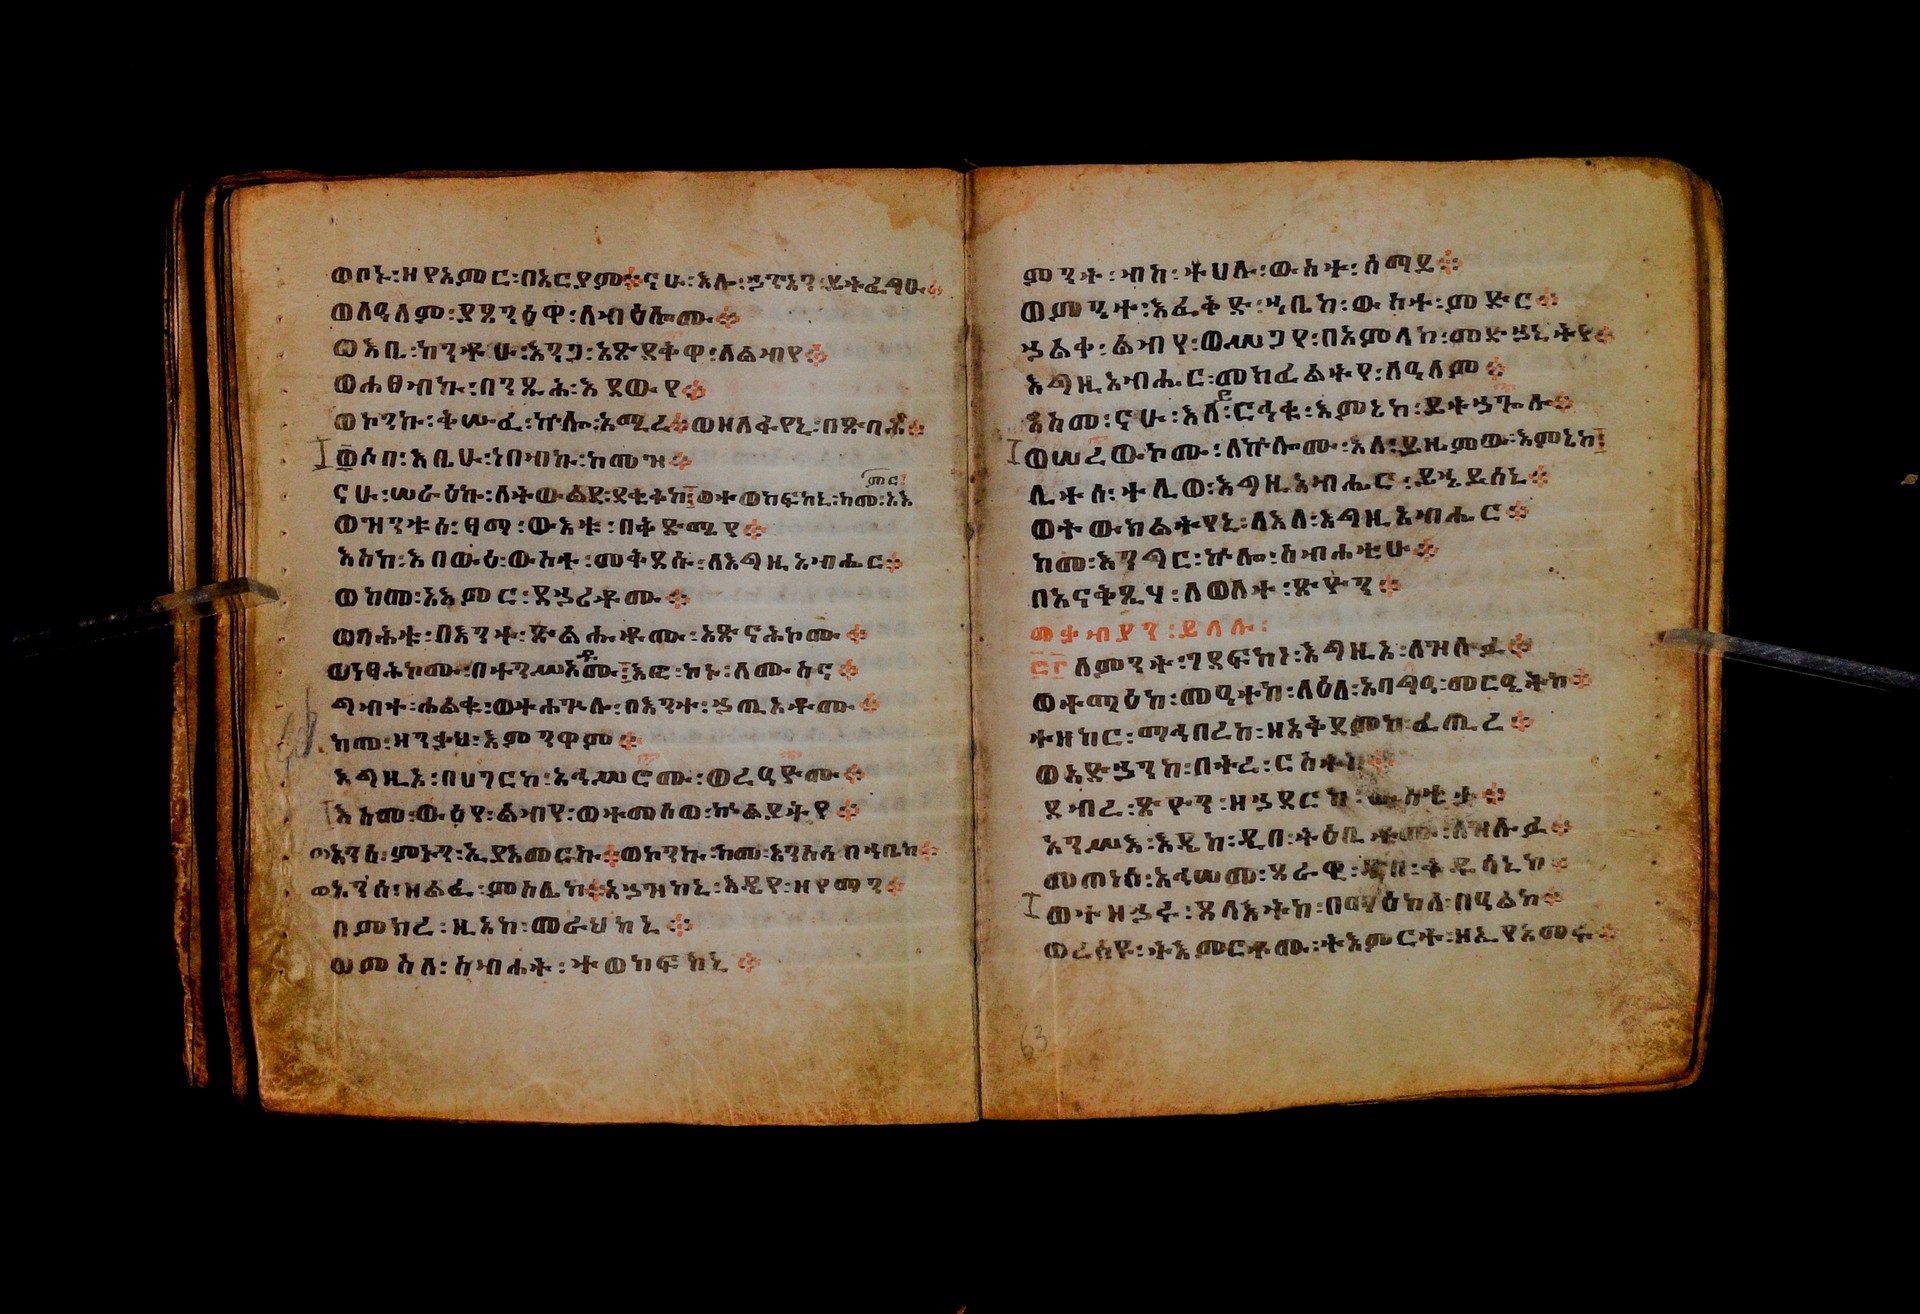 ወቦኑ፡ዘየአምር፡በአርያም፨ናሁ፡እሉ፡ኃጥኣን፡ይትፌግዑ፨
ወለዓለም፡ያጸንዕዋ፡ለብዕሎሙ፨
ወእቤ፡ከንቶሁ፡እንጋ፡አጽደቅዋ፡ለልብየ፨
ወሐፀብኩ፡በንጹሕ፡እደውየ፨
ወኮንኩ፡ቅሡፈ፡ኵሎ፡አሚረ፨ወዘለፋየኒ፡በጽባሕ፨
ወሶበ፡እቤሁ፡ነበብኩ፡ከመዝ፨
ናሁ፡ሠራዕኩ፡ለትውልደ፡ደቂቅከ፤ወተወከፍከኒ፡ከመ፡አእ
ምር፤
ወዝንቱሰ፡ፃማ፡ውእቱ፡በቅድሜየ፨
እስከ፡እበውዕ፡ውስተ፡መቅደሱ፡ለእግዚአብሔር፨
ወከመ፡አእምር፡ደኃሪቶሙ፨
ወባሕቱ፡በእንተ፡ጽልሑቶሙ፡አጽናሕኮሙ፨
ወነፃሕኮሙ፡በተንሥኦቶሙ፤እፎ፡ከኑ፡ለሙስና፨
ግብተ፡ሐልቁ፡ወተሐጕሉ፡በእንተ፡ኃጢአቶሙ፨
ከመ፡ዘንቃህ፡እምንዋም፨
እግዚኦ፡በሀገርከ፡አኅሥሮሙ፡ወረዓዮሙ፨
እስመ፡ውዕየ፡ልብየ፡ወተመሰወ፡ኵልያትየ፨
ወአንሰ፡ምኑን፡ኢያአመርኩ፨ወኮንኩ፡ከመ፡እንስሳ፡በኀቤከ፨
ወአንሰ፡ዘልፈ፡ምስሌከ፨አኃዝከኒ፡እዴየ፡ዘየማን፨
በምክረ፡ዚአከ፡መራህከኒ፨
ወምስለ፡ስብሐት፡ተወከፍከኒ፨
ምንት፡ብከ፡ትሀሉ፡ውስተ፡ሰማይ፨
ወምንተ፡እፈቅድ፡ኀቤከ፡ውስተ፡ምድር፨
ኃልቀ፡ልብየ፡ወሥጋየ፡በአምላከ፡መድኃኒትየ፨
እግዚአብሔር፡መክፈልትየ፡ለዓለም፨
እስመ፡ናሁ፡እለ፡ይርኅቁ፡እምኔከ፡ይትኃጐሉ፨
ወሠረውኮሙ፡ለኵሎሙ፡እለ፡ይዜምው፡እምኔከ፤
ሊተሰ፡ተሊወ፡እግዚአብሔር፡ይኄይሰኒ፨
ወትውክልትየኒ፡ላእለ፡እግዚአብሔር፨
ከመ፡እንግር፡ኵሎ፡ስብሐቲሁ፨
በአናቅጺሃ፡ለወለተ፡ጽዮን፨
መቃብያን፡ይላሉ፡
ለምንት፡ገደፍከነ፡እግዚኦ፡ለዝሉፉ፨
ወተምዕከ፡መዓተከ፡ላዕለ፡አባግዐ፡መርዔትከ፨
ተዘከር፡ማኅበረከ፡ዘአቅደምከ፡ፈጢረ፨
ወአድኃንከ፡በትረ፡ርስትከ፨
ደብረ፡ጽዮን፡ዘኃደርከ፡ውስቴታ፨
አንሥእ፡እዴከ፡ዲበ፡ትዕቢቶሙ፡ለዝሉፉ፨
መጠነሰ፡አኅሠመ፡ፀራዊ፡ዲበ፡ቅዱሳኒከ፨
ወተዘኃሩ፡ጸላእትከ፡በማዕከለ፡በዓልከ፨
ወረሰዩ፡ትእምርቶሙ፡ትእምርተ፡ዘኢየአመሩ፨
63